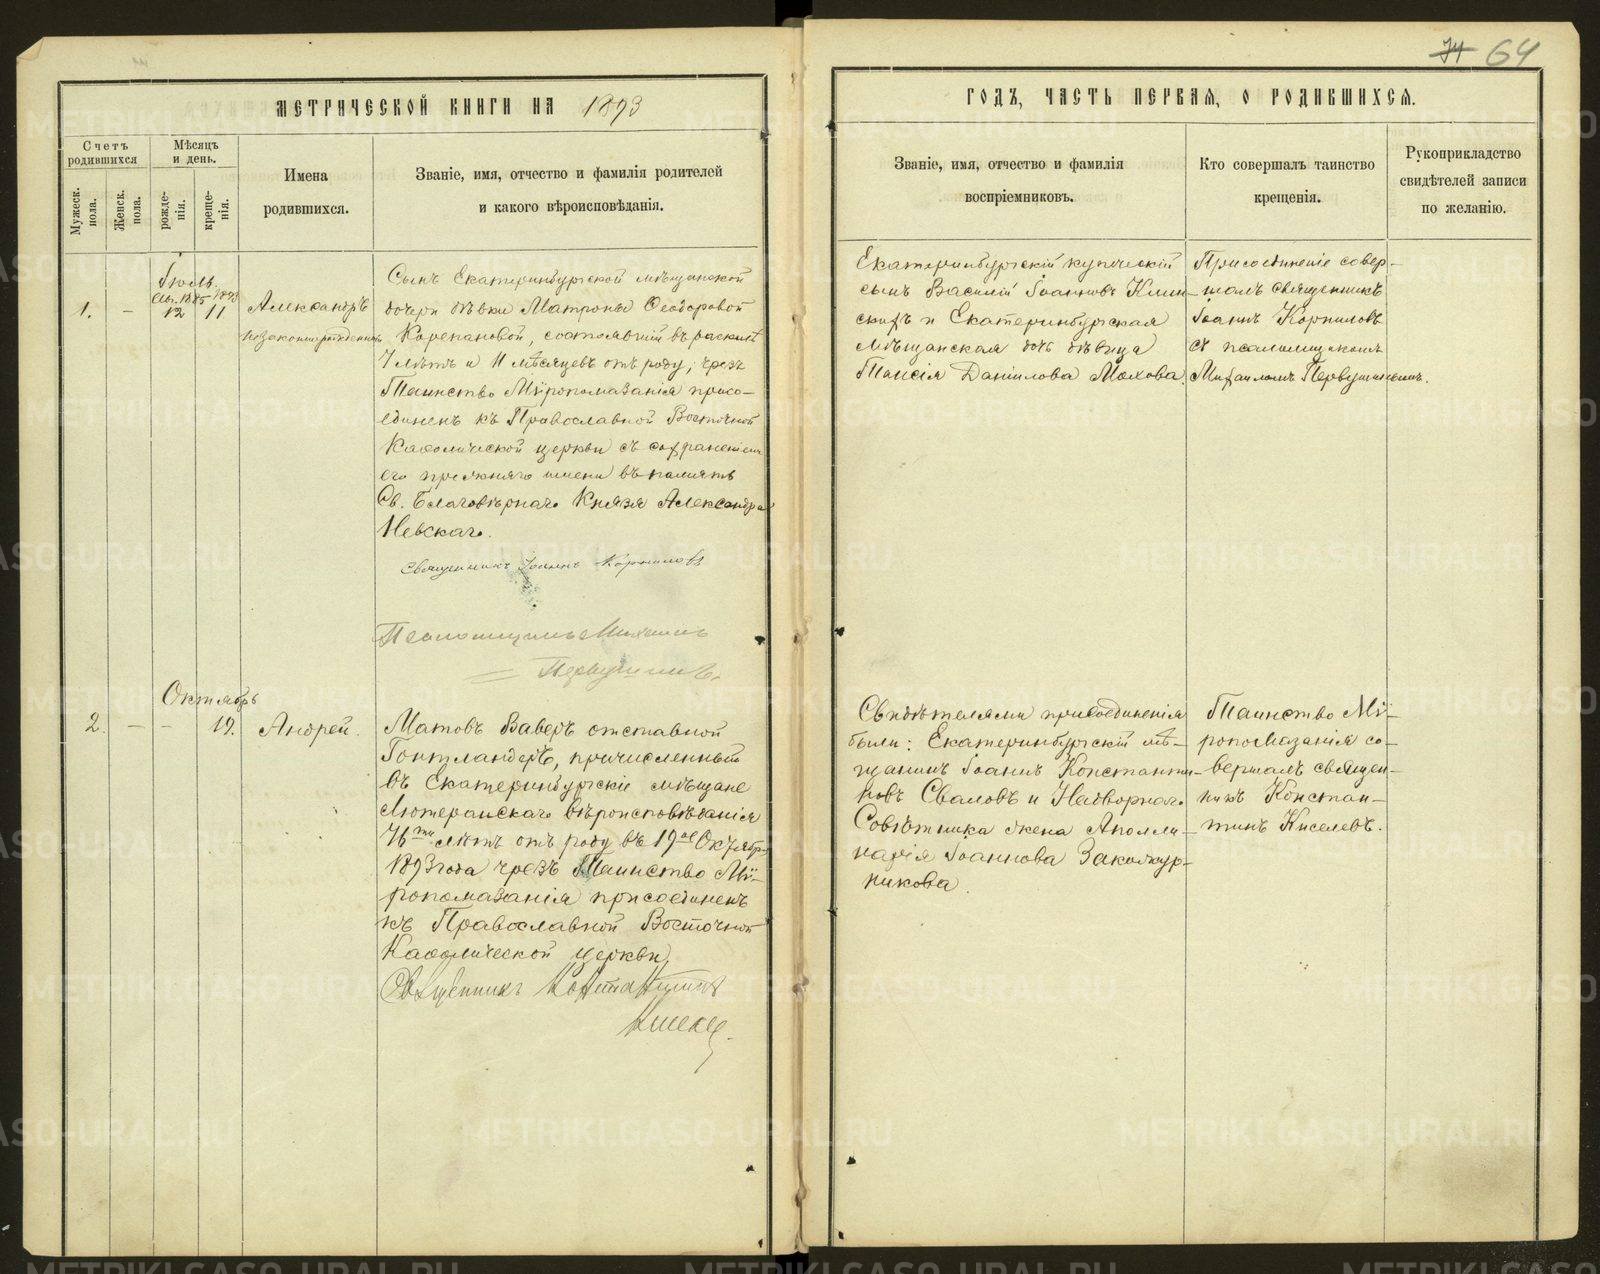 74 64
МЕТРИЧЕСКОЙ КНИГИ НА 1893
ГОДЪ, ЧАСТЬ ПЕРВАЯ, О РОДИВШИХСЯ.
Счетъ родившихся
Мужеск. пола.
Женск. пола.
Мѣсяцъ и день.
рожде-нія.
креще-нія.
Имена родившихся.
Званіе, имя, отчество и фамилія родителей
и какого вѣроисповѣданія.
Званіе, имя, отчество и фамилія
воспріемниковъ.
Кто совершалъ таинство
крещенія.
Рукоприкладство
свидѣтелей записи
по желанію.
Іюль.
1885 1893
1. – 12 11
Александръ
незаконнорожденный
Сынъ Екатеринбургской мѣщанской
дочери дѣвки Матроны Ѳеодоровой
Корепановой, состоявшій въ расколѣ
7 лѣтъ и 11 мѣсяцевъ отъ роду, чрезъ
Таинство Мѵропомазанія присо-
единенъ къ Православной Восточной
Каѳолической церкви съ сохраненіемъ
его прежняго имени въ память
Св. Благовѣрнаго Князя Александра
Невскаго.
Священникъ Іоаннъ Корниловъ
Псаломщикъ Михаилъ
Первушинъ.
Екатеринбургскій купеческій
сынъ Василій Іоанновъ Клин-
скихъ и Екатеринбургская
мѣщанская дочь дѣвица
Таисія Даніилова Махова.
Присоединеніе совер-
шалъ священникъ
Іоаннъ Корниловъ
съ псаломщикомъ
Михаиломъ Первушинымъ.
Октябрь
2. – – 19.
Андрей.
Матовъ Ваверъ отставной
причисленный
въ Екатеринбургскіе мѣщане
Лютеранскаго вѣроисповѣданія
76ти лѣтъ отъ роду въ 19ое Октября
1893 года чрезъ Таинство Мѵ-
ропомазанія присоединенъ
къ Православной Восточной
Каѳолической церкви
Священникъ Константинъ
Киселевъ
Свидѣтелями присоединенія
были: Екатеринбургскій мѣ-
щанинъ Іоаннъ Константи-
новъ Сваловъ и Надворнаго
Совѣтника жена Аполли-
нарія Іоаннова Закожур-
никова.
Таинство Мѵ-
ропомазанія со-
вершалъ священ-
никъ Констан-
тинъ Киселевъ.
METRIKI.GASO-URAL.RU